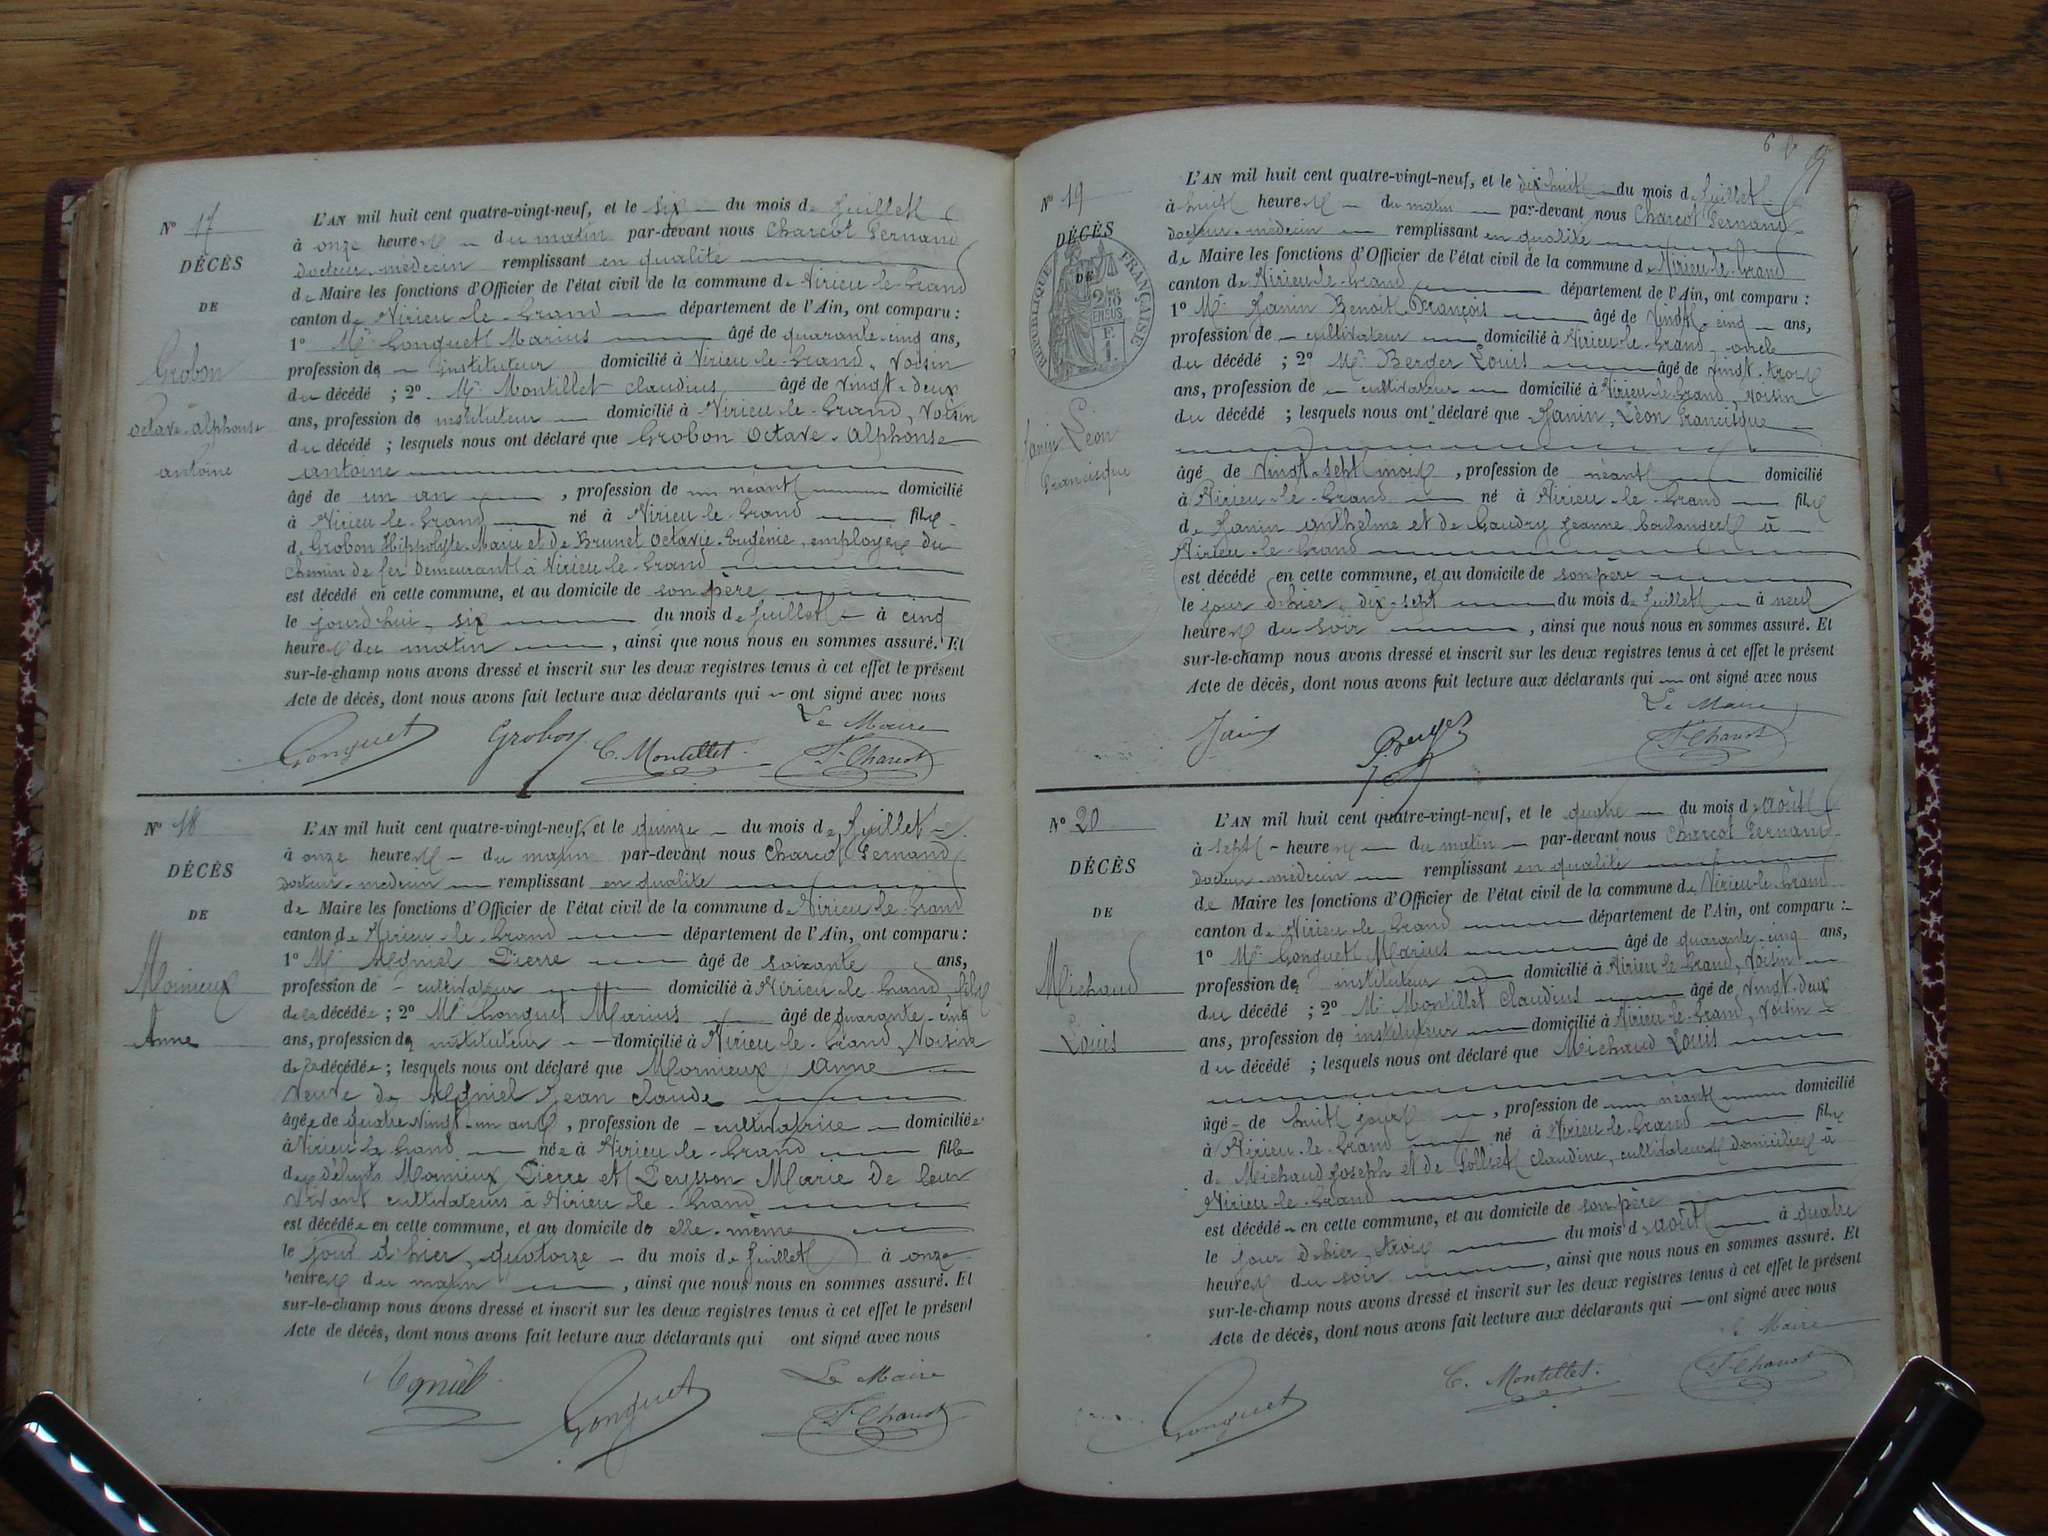 N° 17
DÉCÈS
DE
Grobon
Octave-Alphonse
Antoine
L'AN mil huit cent quatre-vingt-neuf, et le six du mois de Juillet
à onze heures du matin par-devant nous Charcot Fernand
Docteur-médecin remplissant en qualité
de Maire les fonctions d'Officier de l'état civil de la commune de Virieu-le-Grand
canton de Virieu-le-Grand département de l'Ain, ont comparu :
1° Mr Gonguet Marius âgé de quarante-cinq ans,
profession de instituteur domicilié à Virieu-le-Grand, Voisin
du décédé ; 2° Mr Montillet Claudius âgé de vingt-deux
ans, profession de instituteur domicilié à Virieu-le-Grand, Voisin
du décédé ; lesquels nous ont déclaré que Grobon Octave-Alphonse
Antoine
âgé de un an , profession de néant domicilié
à Virieu-le-Grand né à Virieu-le-Grand fils
de Grobon Hippolyte-Marie et de Brunet Octavie-Eugénie, employés du
Chemin de fer demeurant à Virieu-le-Grand
est décédé en cette commune, et au domicile de son père
le jourd'hui, six du mois de Juillet à cinq
heures du matin , ainsi que nous nous en sommes assuré. Et
sur-le-champ nous avons dressé et inscrit sur les deux registres tenus à cet effet le présent
Acte de décès, dont nous avons fait lecture aux déclarants qui ont signé avec nous
Le Maire
Gonguet Grobon C. Montillet F. Charcot
N° 18
DÉCÈS
DE
Mornieux
Anne
L'AN mil huit cent quatre-vingt-neuf, et le quinze du mois de Juillet
à onze heures du matin par-devant nous Charcot Fernand
Docteur-médecin remplissant en qualité
de Maire les fonctions d'Officier de l'état civil de la commune de Virieu-le-Grand
canton de Virieu-le-Grand département de l'Ain, ont comparu :
1° Mr Pierre âgé de soixante ans,
profession de cultivateur domicilié à Virieu-le-Grand, fils
de la décédée ; 2° Mr Gonguet Marius âgé de quarante-cinq
ans, profession de instituteur domicilié à Virieu-le-Grand, Voisin
de la décédée ; lesquels nous ont déclaré que Mornieux Anne
Veuve de Jean Claude
âgée de quatre-vingt-un ans , profession de cultivatrice domiciliée
à Virieu-le-Grand née à Virieu-le-Grand fille
des défunts Mornieux Pierre et Peysson Marie de leur
vivant cultivateurs à Virieu-le-Grand
est décédée en cette commune, et au domicile de elle-même
le jour d'hier, quatorze du mois de Juillet à onze
heures du matin , ainsi que nous nous en sommes assuré. Et
sur-le-champ nous avons dressé et inscrit sur les deux registres tenus à cet effet le présent
Acte de décès, dont nous avons fait lecture aux déclarants qui ont signé avec nous
Le Maire
Gonguet F. Charcot
N° 19
DÉCÈS
DE
RÉPUBLIQUE FRANÇAISE
Janin Léon
Francisque
L'AN mil huit cent quatre-vingt-neuf, et le dix-huit du mois de Juillet
à huit heures du matin par-devant nous Charcot Fernand
Docteur-médecin remplissant en qualité
de Maire les fonctions d'Officier de l'état civil de la commune de Virieu-le-Grand
canton de Virieu-le-Grand département de l'Ain, ont comparu :
1° Mr Janin Benoit-François âgé de vingt-cinq ans,
profession de cultivateur domicilié à Virieu-le-Grand oncle
du décédé ; 2° Mr Berger Louis âgé de vingt-trois
ans, profession de cultivateur domicilié à Virieu-le-Grand, Voisin
du décédé ; lesquels nous ont déclaré que Janin, Léon Francisque
âgé de vingt-sept mois , profession de néant domicilié
à Virieu-le-Grand né à Virieu-le-Grand fils
de Janin Anthelme et de Gaudry Jeanne boulangers à
Virieu-le-Grand
est décédé en cette commune, et au domicile de son père
le jour d'hier, dix-sept du mois de Juillet à neuf
heures du soir , ainsi que nous nous en sommes assuré. Et
sur-le-champ nous avons dressé et inscrit sur les deux registres tenus à cet effet le présent
Acte de décès, dont nous avons fait lecture aux déclarants qui ont signé avec nous
Le Maire
Janin Berger F. Charcot
N° 20
DÉCÈS
DE
Michaud
Louis
L'AN mil huit cent quatre-vingt-neuf, et le quatre du mois d'août
à sept heures du matin par-devant nous Charcot Fernand
Docteur-médecin remplissant en qualité
de Maire les fonctions d'Officier de l'état civil de la commune de Virieu-le-Grand
canton de Virieu-le-Grand département de l'Ain, ont comparu :
1° Mr Gonguet Marius âgé de quarante-cinq ans,
profession de instituteur domicilié à Virieu-le-Grand, Voisin
du décédé ; 2° Mr Montillet Claudius âgé de vingt-deux
ans, profession de instituteur domicilié à Virieu-le-Grand, Voisin
du décédé ; lesquels nous ont déclaré que Michaud Louis
âgé de huit jours , profession de néant domicilié
à Virieu-le-Grand né à Virieu-le-Grand fils
de Michaud Joseph et de Claudine, cultivateurs domiciliés à
Virieu-le-Grand
est décédé en cette commune, et au domicile de son père
le jour d'hier, trois du mois d'août à quatre
heures du soir , ainsi que nous nous en sommes assuré. Et
sur-le-champ nous avons dressé et inscrit sur les deux registres tenus à cet effet le présent
Acte de décès, dont nous avons fait lecture aux déclarants qui ont signé avec nous
Le Maire
Gonguet C. Montillet F. Charcot